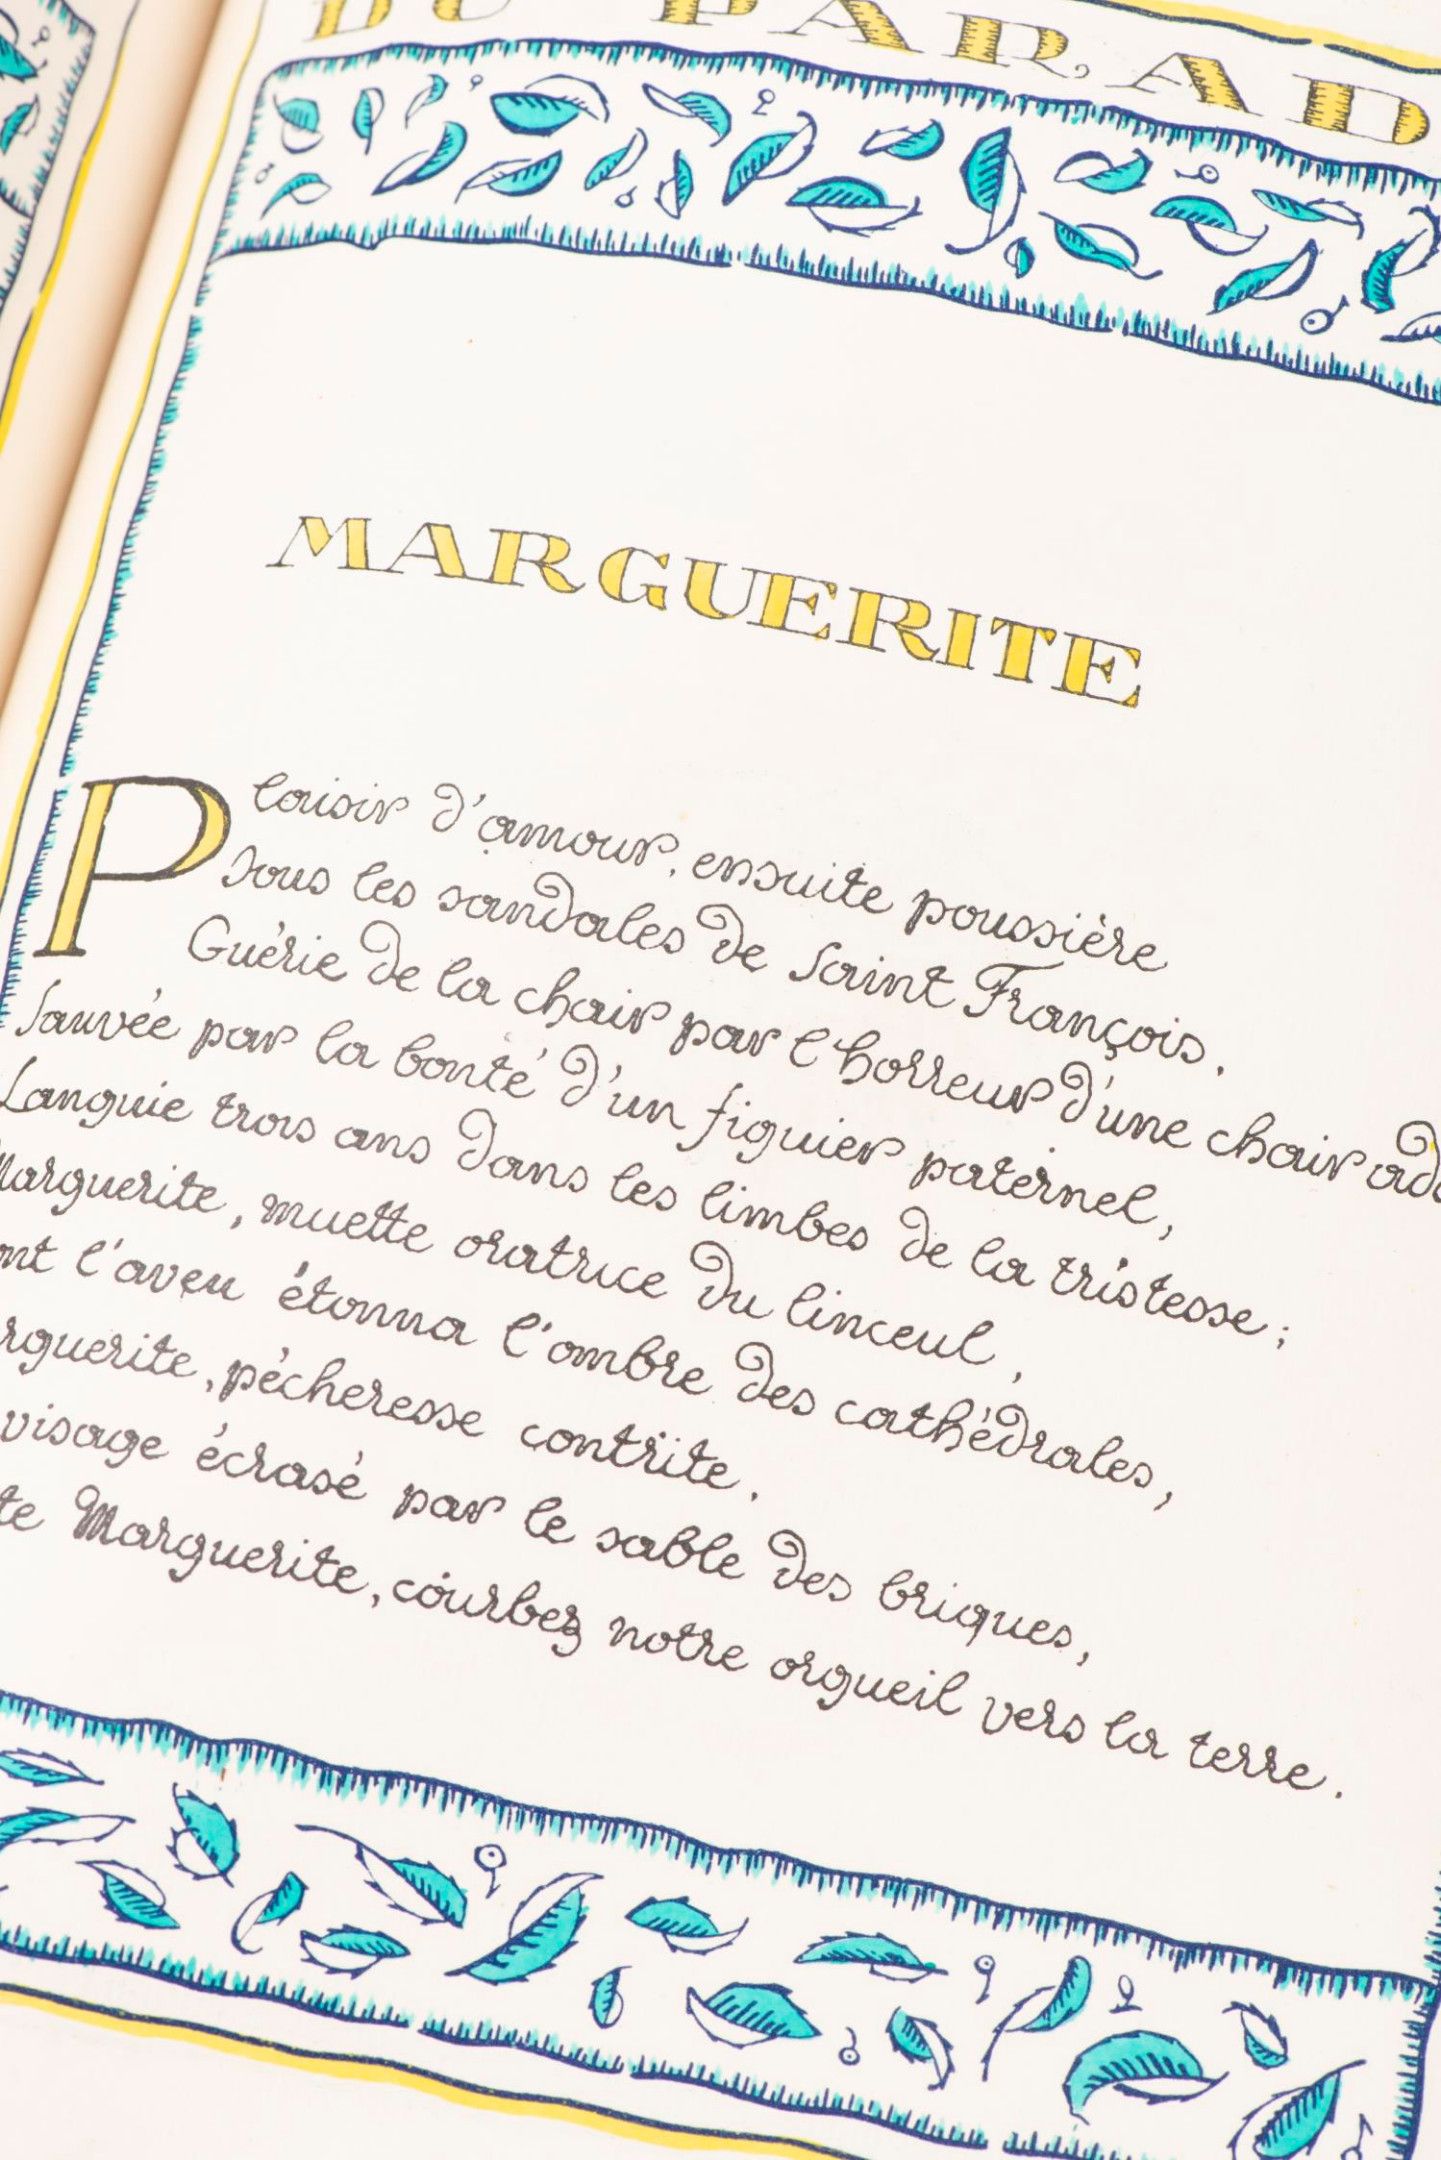 DU PARAD
MARGUERITE
Plaisir d'amour, ensuite poussière
Sous les sandales de Saint François.
Guérie de la chair par l'horreur d'une chair
Sauvée par la bonté d'un figuier paternel,
Languie trois ans dans les limbes de la tristesse;
Marguerite, muette oratrice du linceul,
nt l'aveu étonna l'ombre des cathédrales,
rguerite, pécheresse contrite.
visage écrasé par le sable des briques,
te Marguerite, courbez notre orgueil vers la terre.